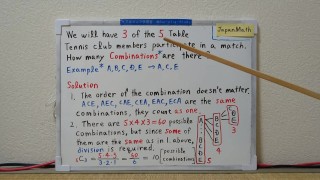 JapanMath
We will have 3 of the 5 Table
Tennis club members participate in a match.
How many "Combinations" are there?
Example* A, B, C, D, E → A, C, E
Solution
1. The order of the combination doesn't matter.
ACE, AEC, CAE, CEA, EAC, ECA are the same
combinations, they count as one.
2. There are 5×4×3=60 possible
combinations, but since some of
them are the same as in 1. above,
division is required.
₅C₃ = 5·4·3 / 3·2·1 = 60 / 6 = 10 combinations
A B C D E
5
B C D E
4
C D E
3